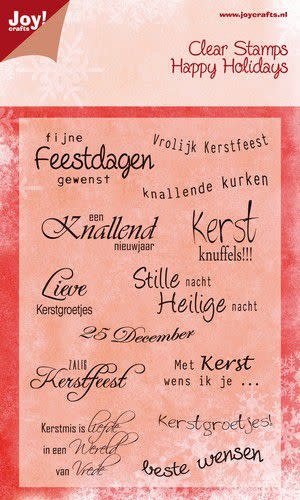 Joy!
crafts
www.joycrafts.nl
Clear Stamps
Happy Holidays
fijne
Feestdagen
gewenst
Vrolijk Kerstfeest
knallende kurken
een
Knallend
nieuwjaar
Kerst
knuffels!!!
Lieve
Kerstgroetjes
Stille nacht
Heilige nacht
25 December
ZALIG
Kerstfeest
Met Kerst
wens ik je ...
Kerstmis is liefde
in een Wereld
van Vrede
Kerstgroetjes!
beste wensen